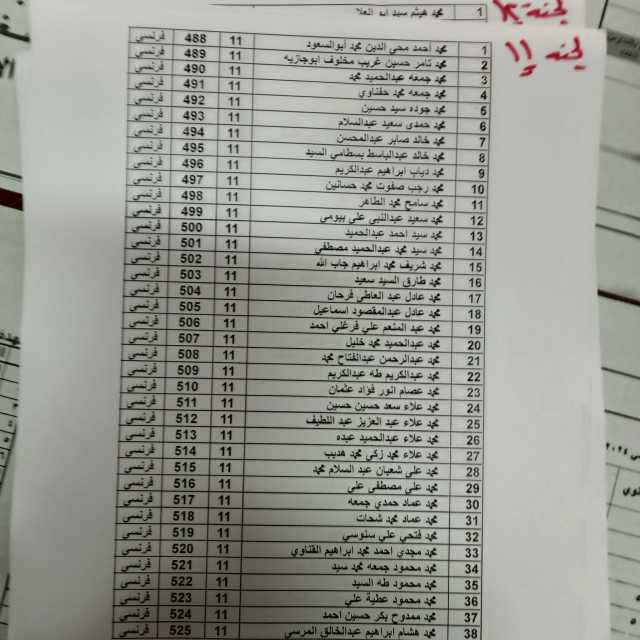 1 محمد هيثم سيد ابو العلا
لجنة
لجنة 11
1 محمد أحمد محي الدين محمد ابوالسعود 11 488 فرنسى
2 محمد تامر حسين غريب مخلوف ابوجازيه 11 489 فرنسى
3 محمد جمعه عبدالحميد محمد 11 490 فرنسى
4 محمد جمعه محمد حفناوي 11 491 فرنسى
5 محمد جوده سيد حسين 11 492 فرنسى
6 محمد حمدى سعيد عبدالسلام 11 493 فرنسى
7 محمد خالد صابر عبدالمحسن 11 494 فرنسى
8 محمد خالد عبدالباسط بسطامي السيد 11 495 فرنسى
9 محمد دياب ابراهيم عبدالكريم 11 496 فرنسى
10 محمد رجب صفوت محمد حسانين 11 497 فرنسى
11 محمد سامح محمد الطاهر 11 498 فرنسى
12 محمد سعيد عبدالنبي علي بيومى 11 499 فرنسى
13 محمد سيد احمد عبدالحميد 11 500 فرنسى
14 محمد سيد محمد عبدالحميد مصطفي 11 501 فرنسى
15 محمد شريف محمد ابراهيم جاب الله 11 502 فرنسى
16 محمد طارق السيد سعيد 11 503 فرنسى
17 محمد عادل عبد العاطى فرحان 11 504 فرنسى
18 محمد عادل عبدالمقصود اسماعيل 11 505 فرنسى
19 محمد عبد المنعم علي فرغلي احمد 11 506 فرنسى
20 محمد عبدالحميد محمد خليل 11 507 فرنسى
21 محمد عبدالرحمن عبدالفتاح محمد 11 508 فرنسى
22 محمد عبدالكريم طه عبدالكريم 11 509 فرنسى
23 محمد عصام انور فؤاد عثمان 11 510 فرنسى
24 محمد علاء سعد حسين حسين 11 511 فرنسى
25 محمد علاء عبد العزيز عبد اللطيف 11 512 فرنسى
26 محمد علاء عبدالحميد عبده 11 513 فرنسى
27 محمد علاء محمد زكي محمد هديب 11 514 فرنسى
28 محمد على شعبان عبد السلام محمد 11 515 فرنسى
29 محمد على مصطفى علي 11 516 فرنسى
30 محمد عماد حمدي جمعه 11 517 فرنسى
31 محمد عماد محمد شحات 11 518 فرنسى
32 محمد فتحي علي سنوسي 11 519 فرنسى
33 محمد مجدي احمد محمد ابراهيم القناوي 11 520 فرنسى
34 محمد محمود جمعه محمد سيد 11 521 فرنسى
35 محمد محمود طه السيد 11 522 فرنسى
36 محمد محمود عطية علي 11 523 فرنسى
37 محمد ممدوح بكر حسين احمد 11 524 فرنسى
38 محمد هشام ابراهيم عبدالخالق المرسي 11 525 فرنسى